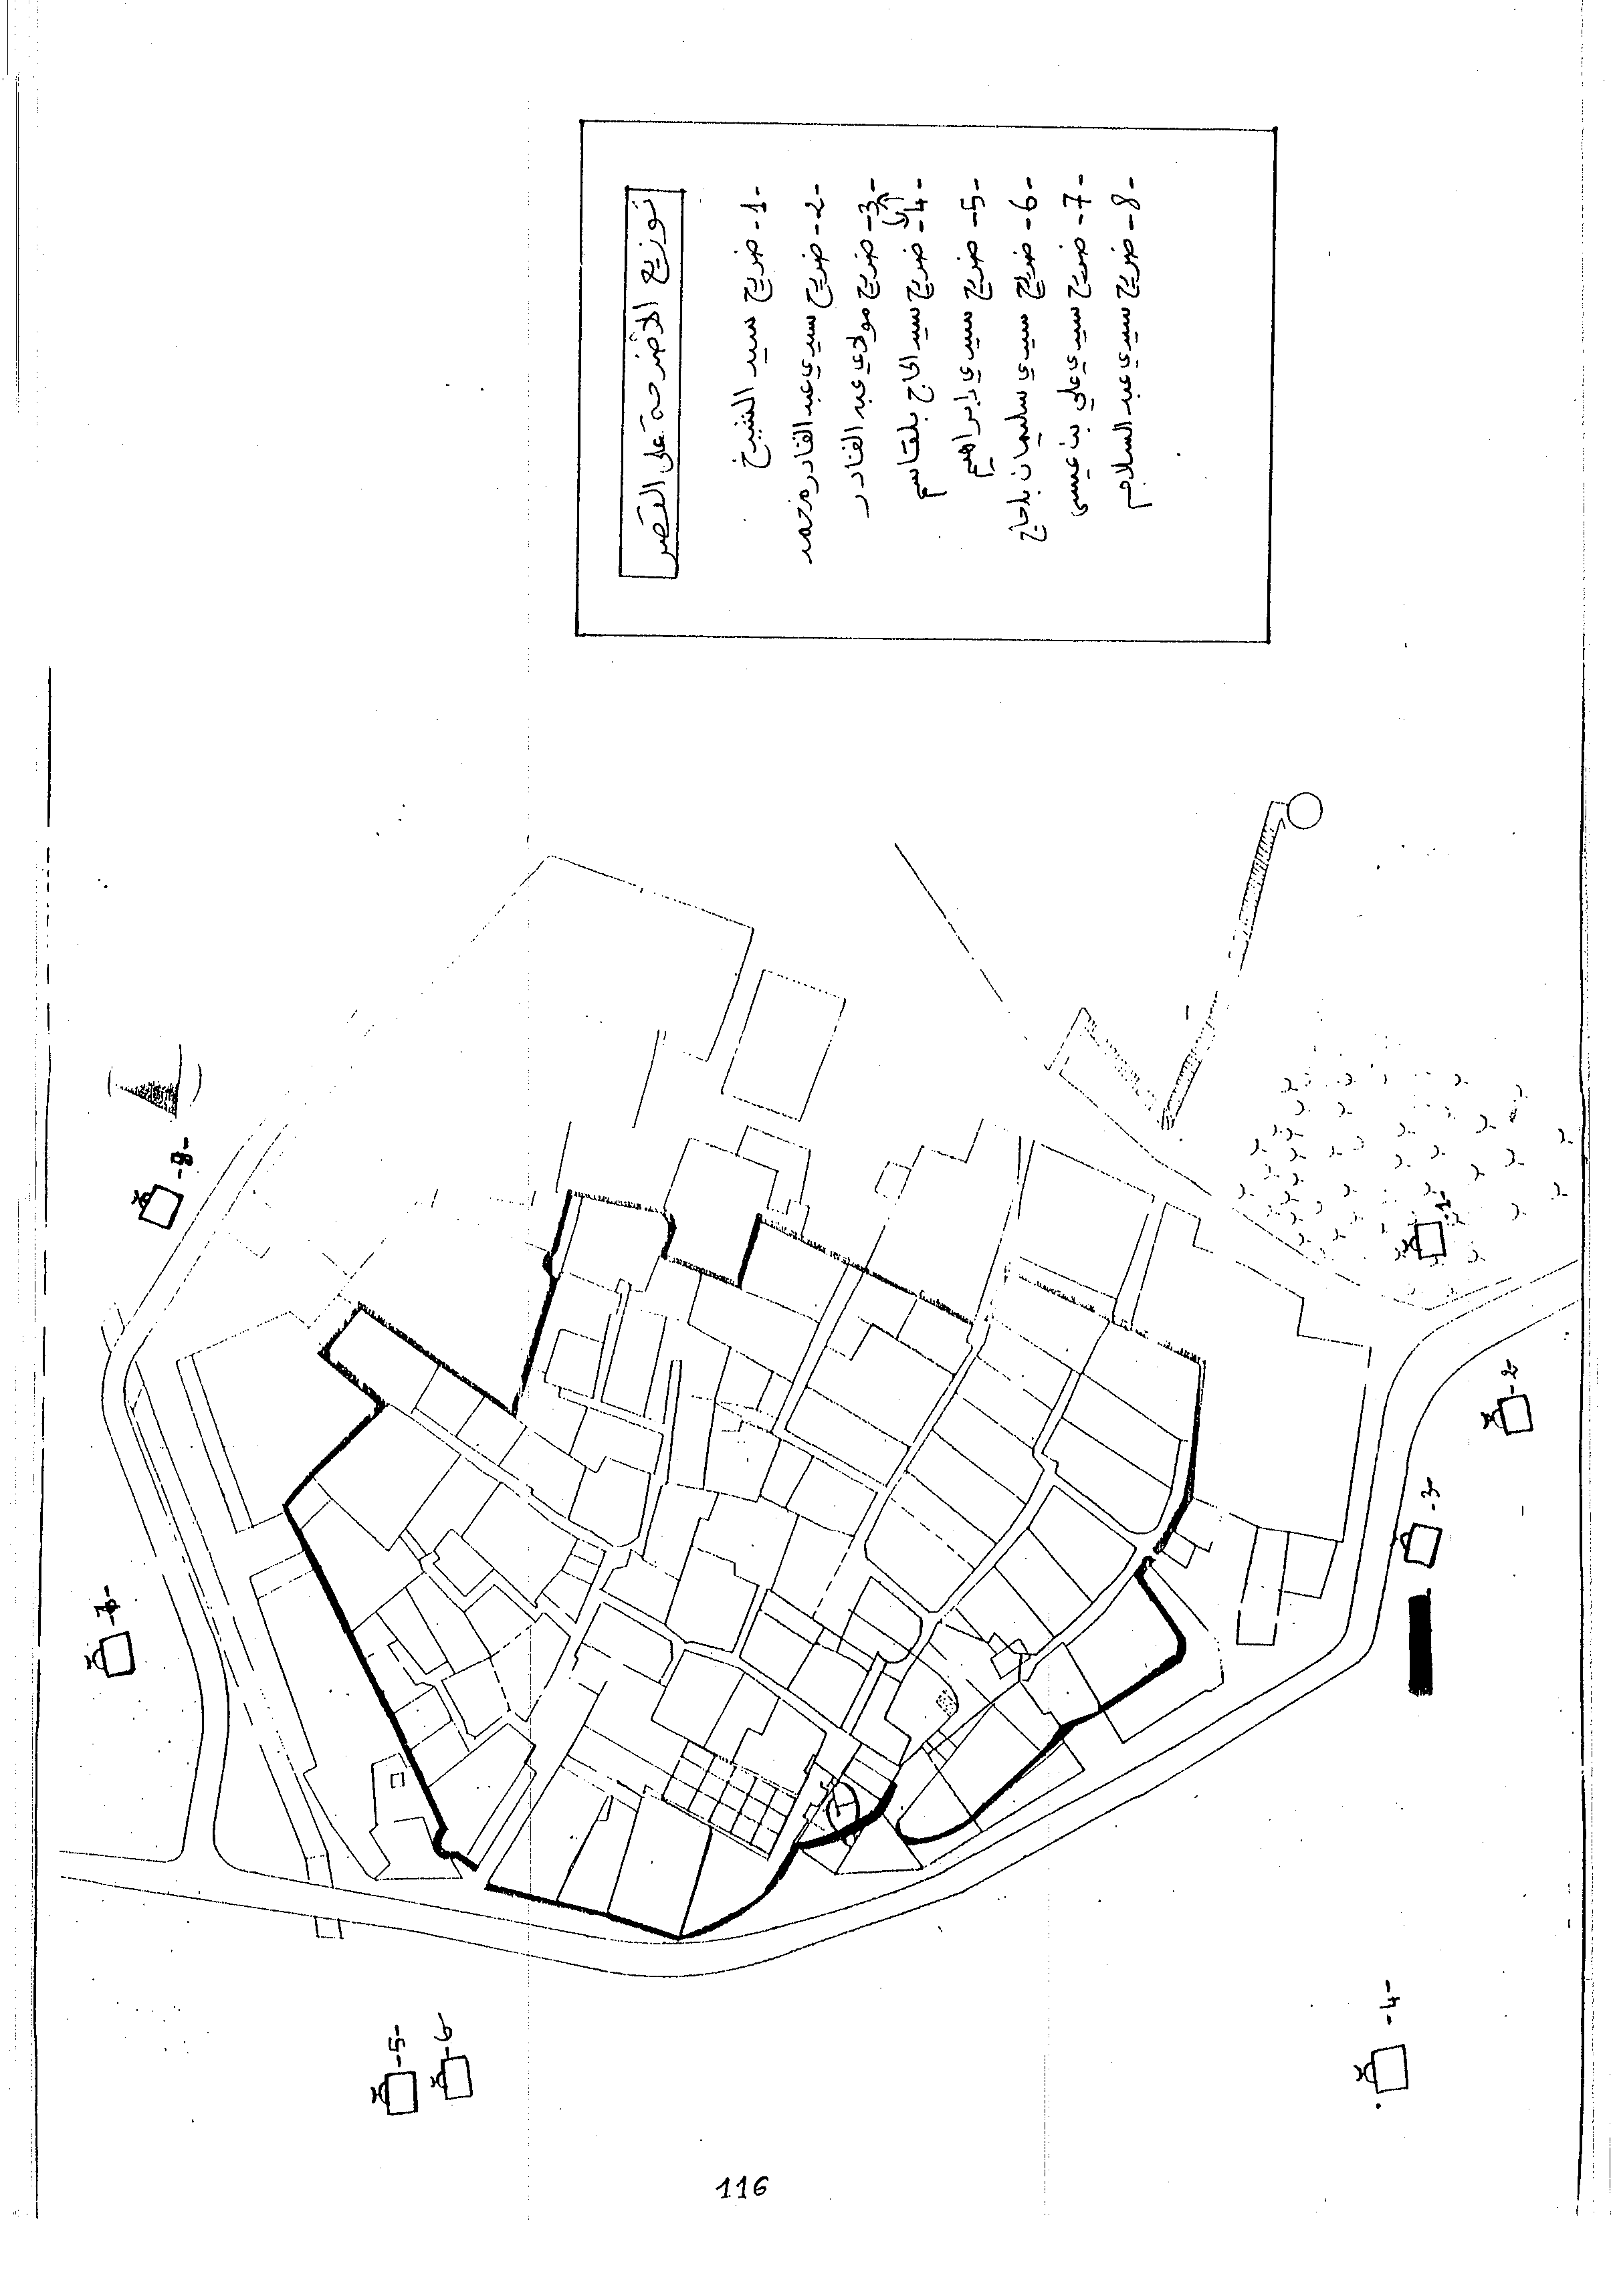 توزيع الأضرحة على القصر
-1- ضريح سيد الشيخ
-2- ضريح سيدي عبد القادر محمد
-3- ضريح مولاي عبد القادر
-4- ضريح سيد الحاج بلقاسم
-5- ضريح سيدي إبراهيم
-6- ضريح سيدي سليمان بلحاج
-7- ضريح سيدي علي بن عيسى
-8- ضريح سيدي عبد السلام
-8-
-1-
-2-
-3-
-7-
-4-
-5-
-6-
116